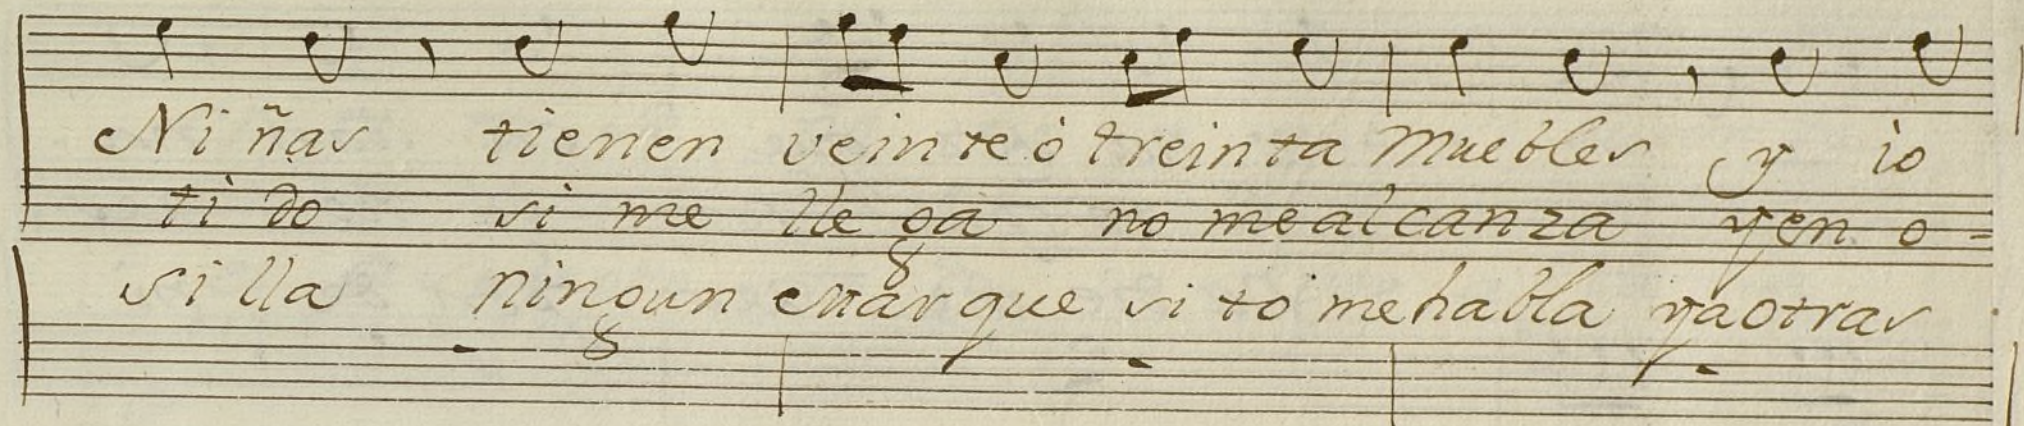 Ni ñas tienen veinte ò treinta Muebles y io
ti do si me lle ga no me alcanza y en o-
si lla ningun Mar que si to me habla y a otras